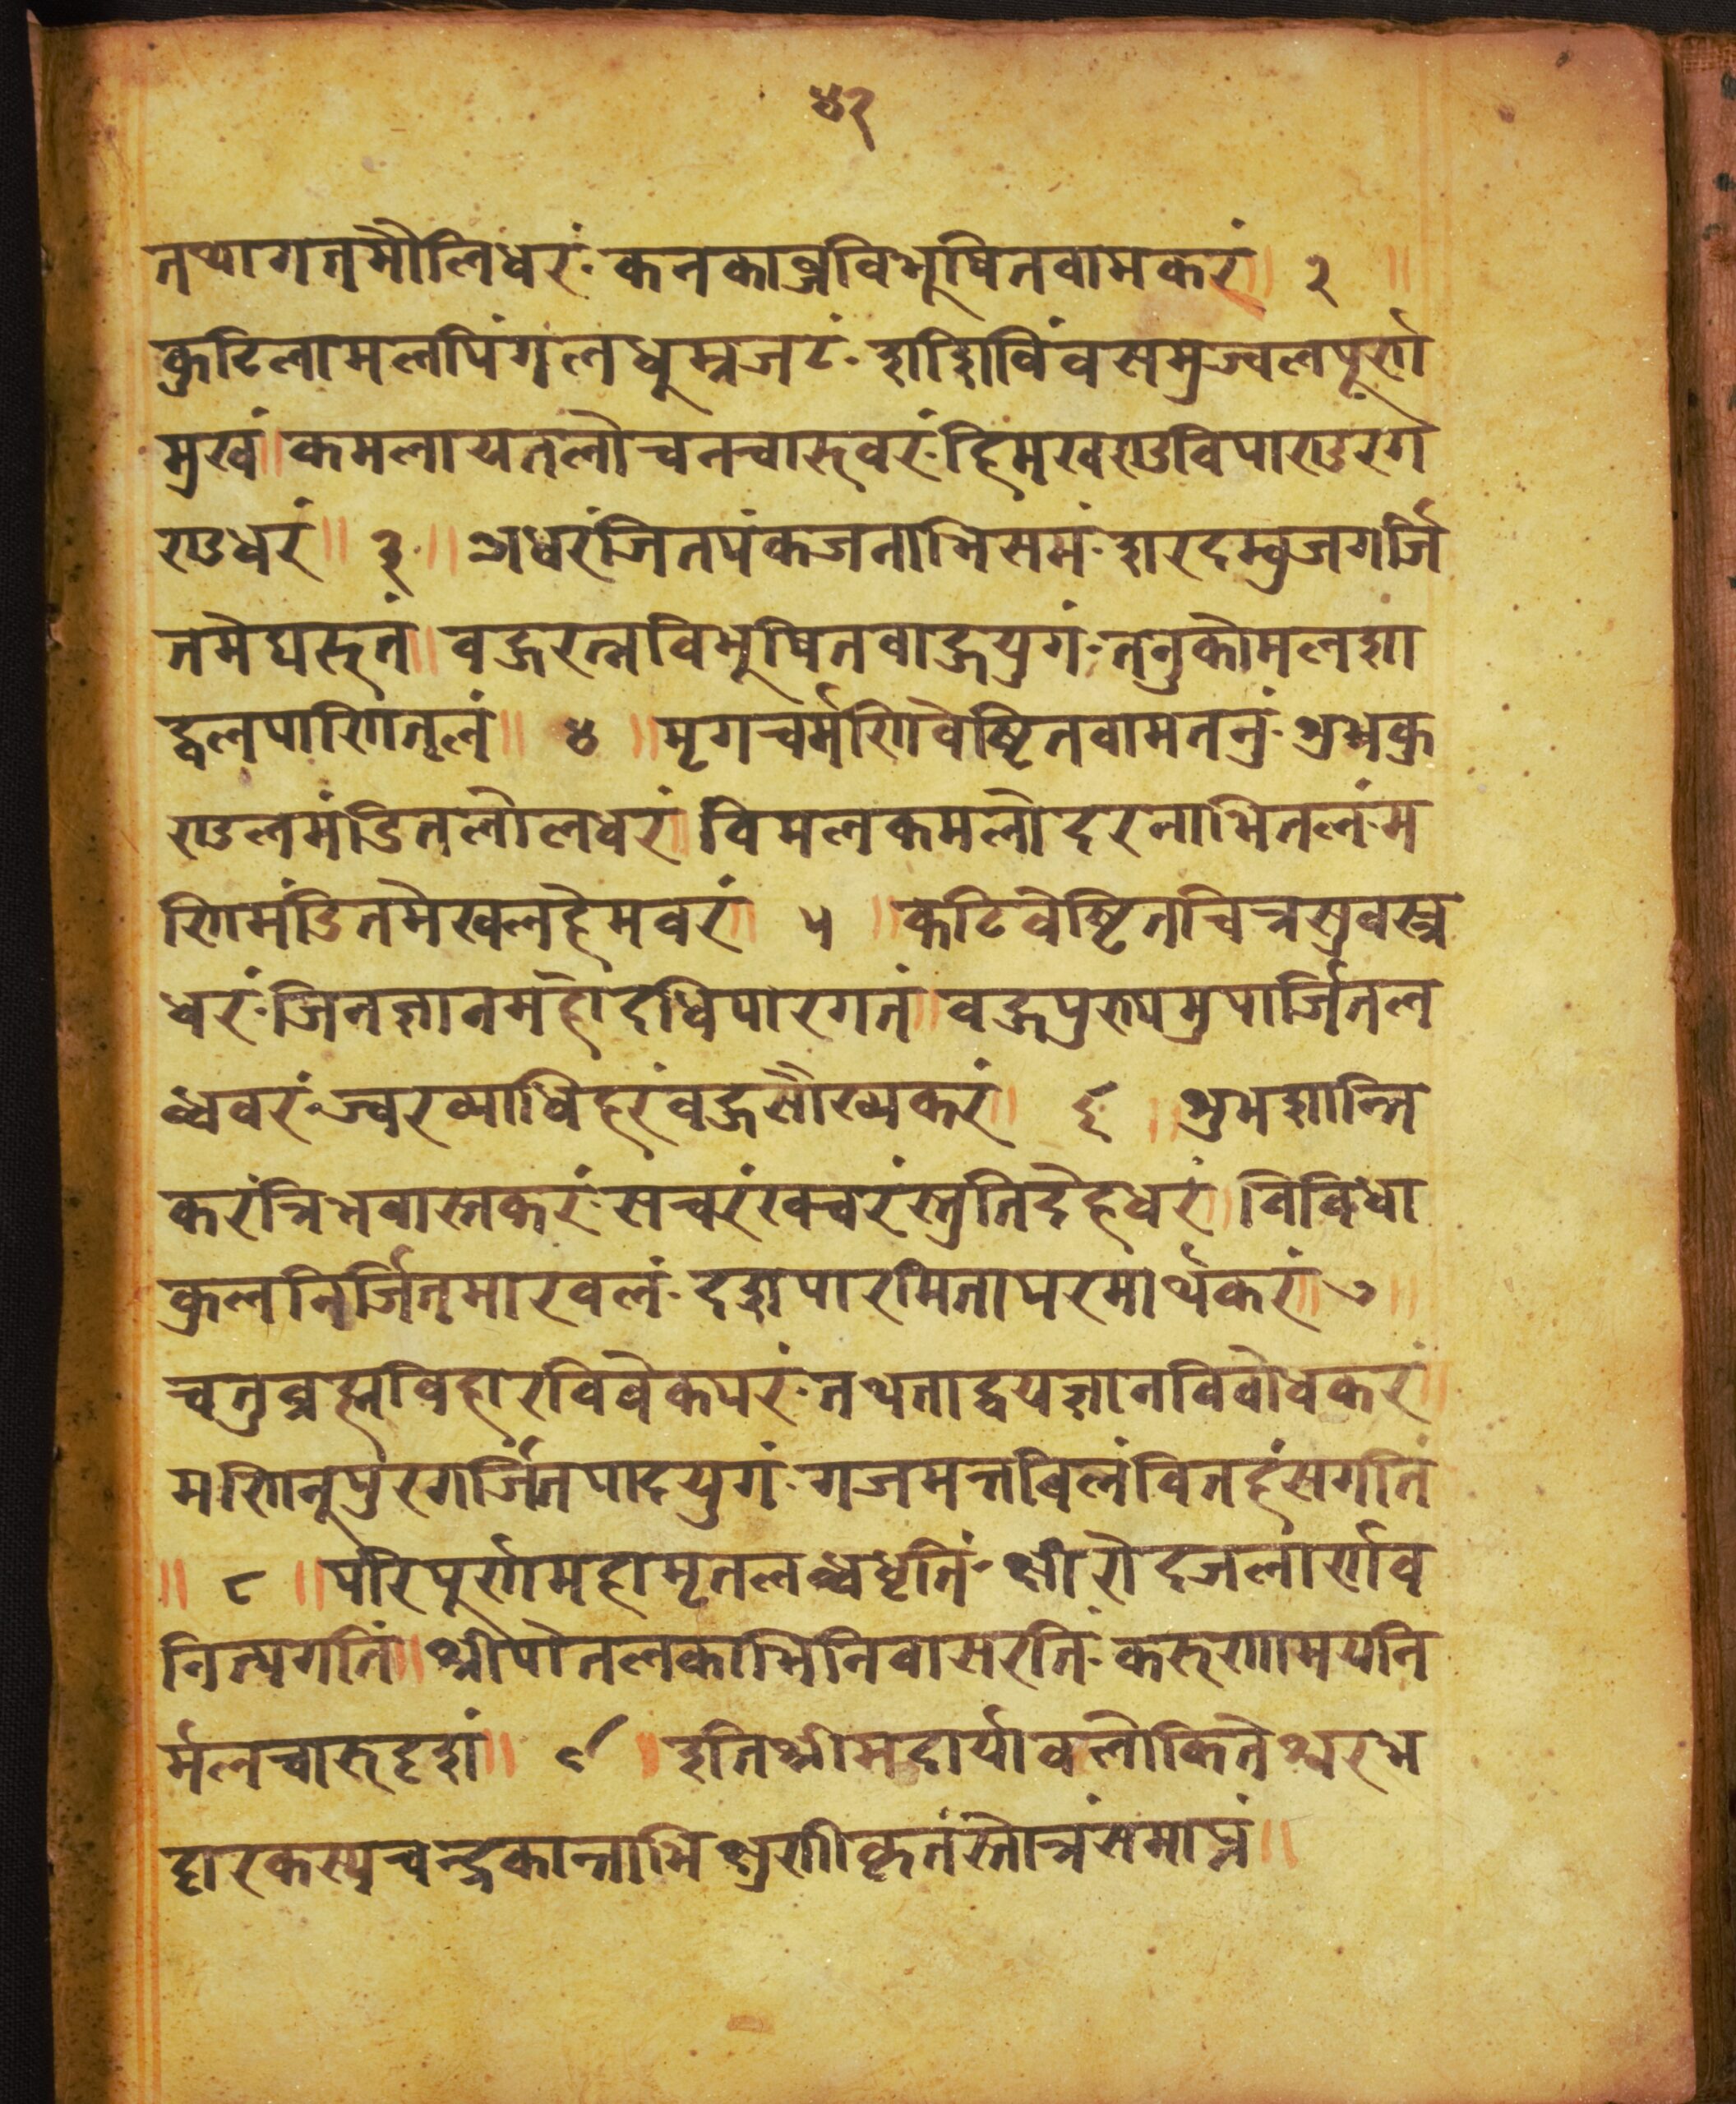 ४२
तथागतमौलिधरं॰ कनकाब्जविभूषितवामकरं॥ २ ॥
कुटिलामलपिंगलधूम्रजटं॰ शशिविंवसमुज्वलपूर्ण
मुखं॥ कमलायतलोचनचारुवरं॰ हिमखण्डविपाण्डुरग
ण्डधरं॥ ३ ॥ अधरंजितपंकजनाभिसमं॰ शरदम्बुजगर्जि
तमेघरुतं॥ वहुरत्नविभूषितवाहुयुगं॰ तनुकोमलशा
द्वलपाणितलं॥ ४ ॥ मृगचर्मणिवेष्टितवामतनुं॰ शुभकु
ण्डलमंडितलोलधरं॥ विमलकमलोदरनाभितलं॰ म
णिमंडितमेखलहेमवरं॥ ५ ॥ कटिवेष्टितचित्रसुवस्त्र
धरं॰ जिनज्ञानमहोदधिपारगतं॥ वहुपुण्यमुपार्जितल
ब्धवरं॰ ज्वरव्याधिहरंवहुसौख्यकरं॥ ६ ॥ शुभशान्ति
करंत्रिभवास्तकरं॰ सचरंखचरंस्तुतिदेहधरं॥ विविधा
कुलनिर्जितमारवलं॰ दशपारमितापरमार्थकरं॥ ७ ॥
चतुब्रह्मविहारविवेकपरं॰ तथताद्वयज्ञानविवोधकरं॥
मणिनूपुरगर्जितपादयुगं॰ गजमत्तविलंवितहंसगतिं
॥ ८ ॥ परिपूर्णमहामृतलब्धधृतिं॰ क्षीरोदजलार्णव
नित्यगतिं॥ श्रीपोतलकाभिनिवासरतिं॰ करुणामयनि
र्मलचारुदृशं॥ ९ ॥ इतिश्रीमदार्यावलोकितेश्वरभ
ट्टारकस्यचन्द्रकान्ताभिक्षुणीकृतंस्तोत्रंसमाप्तं॥